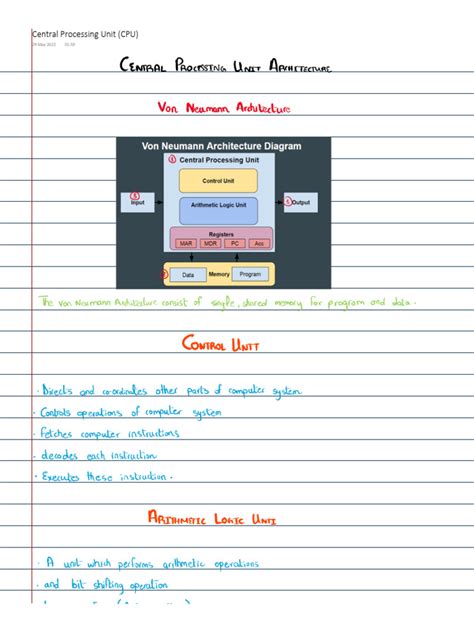 Central Processing Unit (CPU)
CENTRAL PROCESSING UNIT ARCHITECTURE
Von Neumann Architecture
Von Neumann Architecture Diagram
Central Processing Unit
Control Unit
Input
Arithmetic Logic Unit
Output
Registers
MAR MDR PC Acc
Data Memory Program
The Von Neumann Architecture consist of single, shared memory for program and data.
CONTROL UNIT
· Directs and co-ordinates other parts of computer system
· Controls operations of computer system
· Fetches computer instructions
· decodes each instruction
· Executes these instruction.
ARITHMETIC LOGIC UNIT
· A unit which performs arithmetic operations
· and bit shifting operation